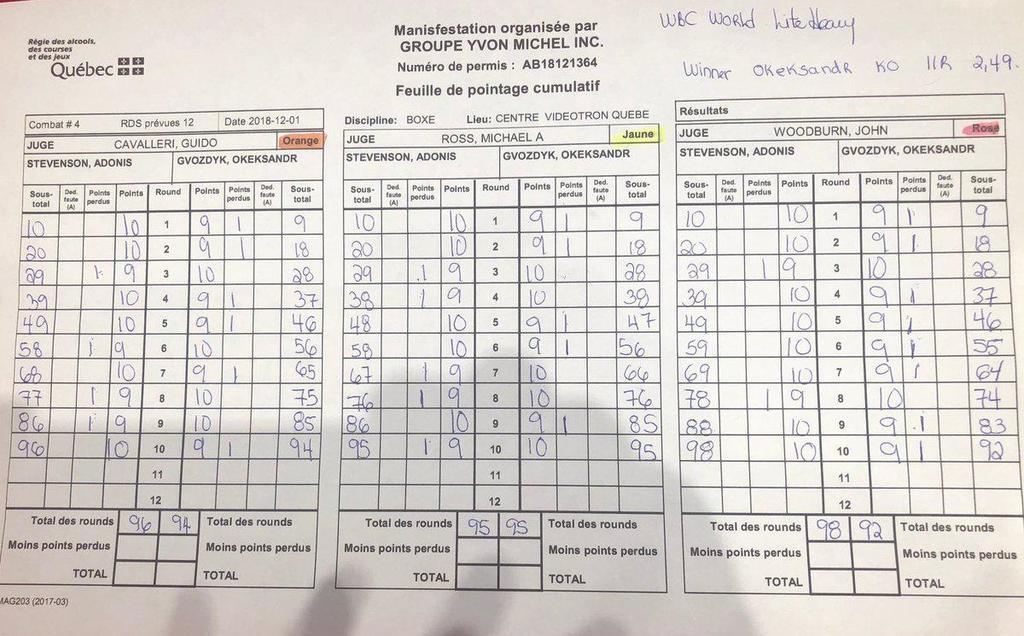 Régie des alcools,
des courses
et des jeux
Québec
Manisfestation organisée par
GROUPE YVON MICHEL INC.
Numéro de permis : AB18121364
Feuille de pointage cumulatif
WBC WORLD LiteHeavy
Winner OKEKSANDR KO 11R 2,49.
Combat # 4 RDS prévues 12 Date 2018-12-01
JUGE CAVALLERI, GUIDO Orange
STEVENSON, ADONIS GVOZDYK, OKEKSANDR
Sous-total Ded. faute (A) Points perdus Points Round Points Points perdus Ded. faute (A) Sous-total
10 10 1 9 1 9
20 10 2 9 1 18
29 1 9 3 10 28
39 10 4 9 1 37
49 10 5 9 1 46
58 1 9 6 10 56
68 10 7 9 1 65
77 1 9 8 10 75
86 1 9 9 10 85
96 10 10 9 1 94
11
12
Total des rounds 96 94 Total des rounds
Moins points perdus Moins points perdus
TOTAL TOTAL
Discipline: BOXE Lieu: CENTRE VIDEOTRON QUÉBE
JUGE ROSS, MICHAEL A Jaune
STEVENSON, ADONIS GVOZDYK, OKEKSANDR
Sous-total Ded. faute (A) Points perdus Points Round Points Points perdus Ded. faute (A) Sous-total
10 10 1 9 1 9
20 10 2 9 1 18
29 1 9 3 10 28
38 1 9 4 10 38
48 10 5 9 1 47
58 10 6 9 1 56
67 1 9 7 10 66
76 1 9 8 10 76
86 10 9 9 1 85
95 1 9 10 10 95
11
12
Total des rounds 95 95 Total des rounds
Moins points perdus Moins points perdus
TOTAL TOTAL
Résultats
JUGE WOODBURN, JOHN Rose
STEVENSON, ADONIS GVOZDYK, OKEKSANDR
Sous-total Ded. faute (A) Points perdus Points Round Points Points perdus Ded. faute (A) Sous-total
10 10 1 9 1 9
20 10 2 9 1 18
29 1 9 3 10 28
39 10 4 9 1 37
49 10 5 9 1 46
59 10 6 9 1 55
69 10 7 9 1 64
78 1 9 8 10 74
88 10 9 9 1 83
98 10 10 9 1 92
11
12
Total des rounds 98 92 Total des rounds
Moins points perdus Moins points perdus
TOTAL TOTAL
MAG203 (2017-03)